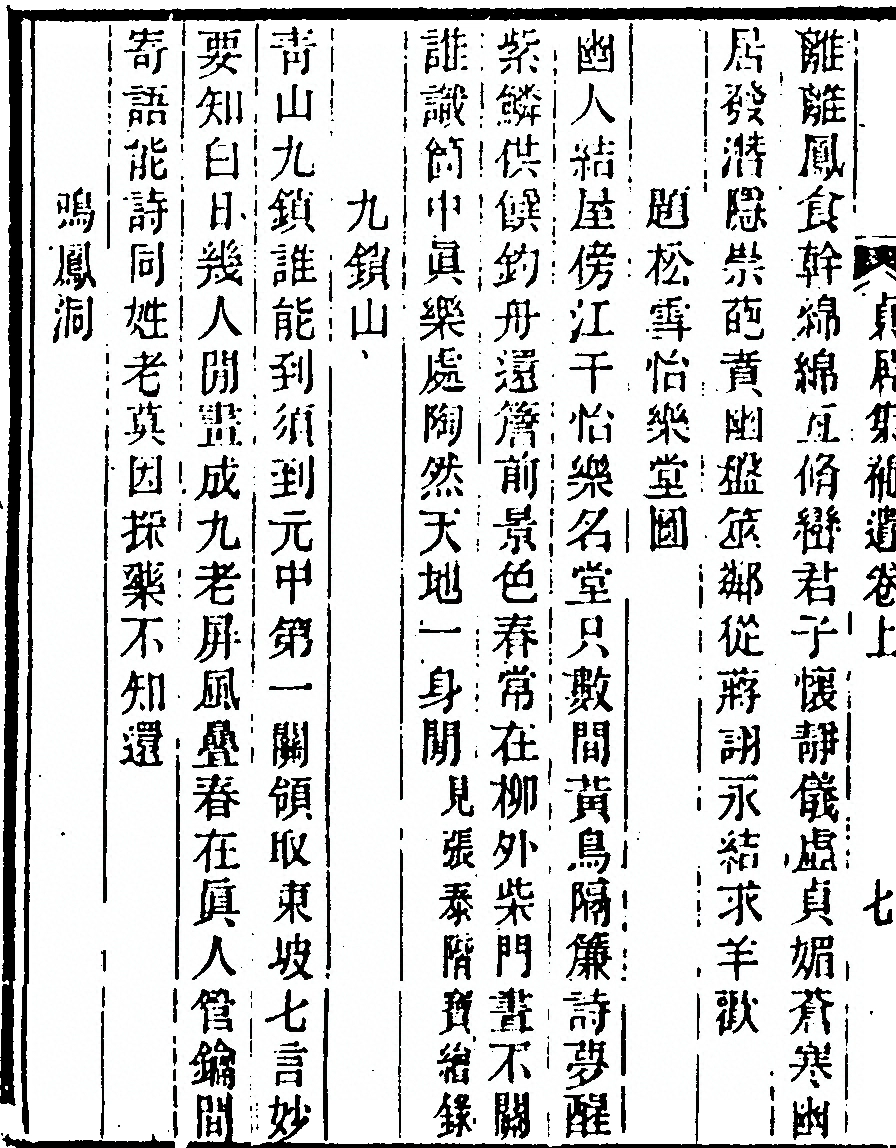 貞居集補遺卷上 七
離離鳳食幹綿綿亙脩巒君子懷靜儀虛貞媚蒼寒幽
居發潛隱崇葩賁幽檻筑鄰從蔣詡永結求羊歡
題松雪怡樂堂圖
幽人結屋傍江干怡樂名堂只數間黃鳥隔簾詩夢醒
紫鱗供饌釣舟還簷前景色春常在柳外柴門晝不關
誰識箇中眞樂處陶然天地一身閒見張泰階寶繪錄
九鎖山
靑山九鎖誰能到須到元中第一關領取東坡七言妙
要知白日幾人閒畫成九老屏風疊春在眞人管鑰間
寄語能詩同姓老莫因採藥不知還
鳴鳳洞